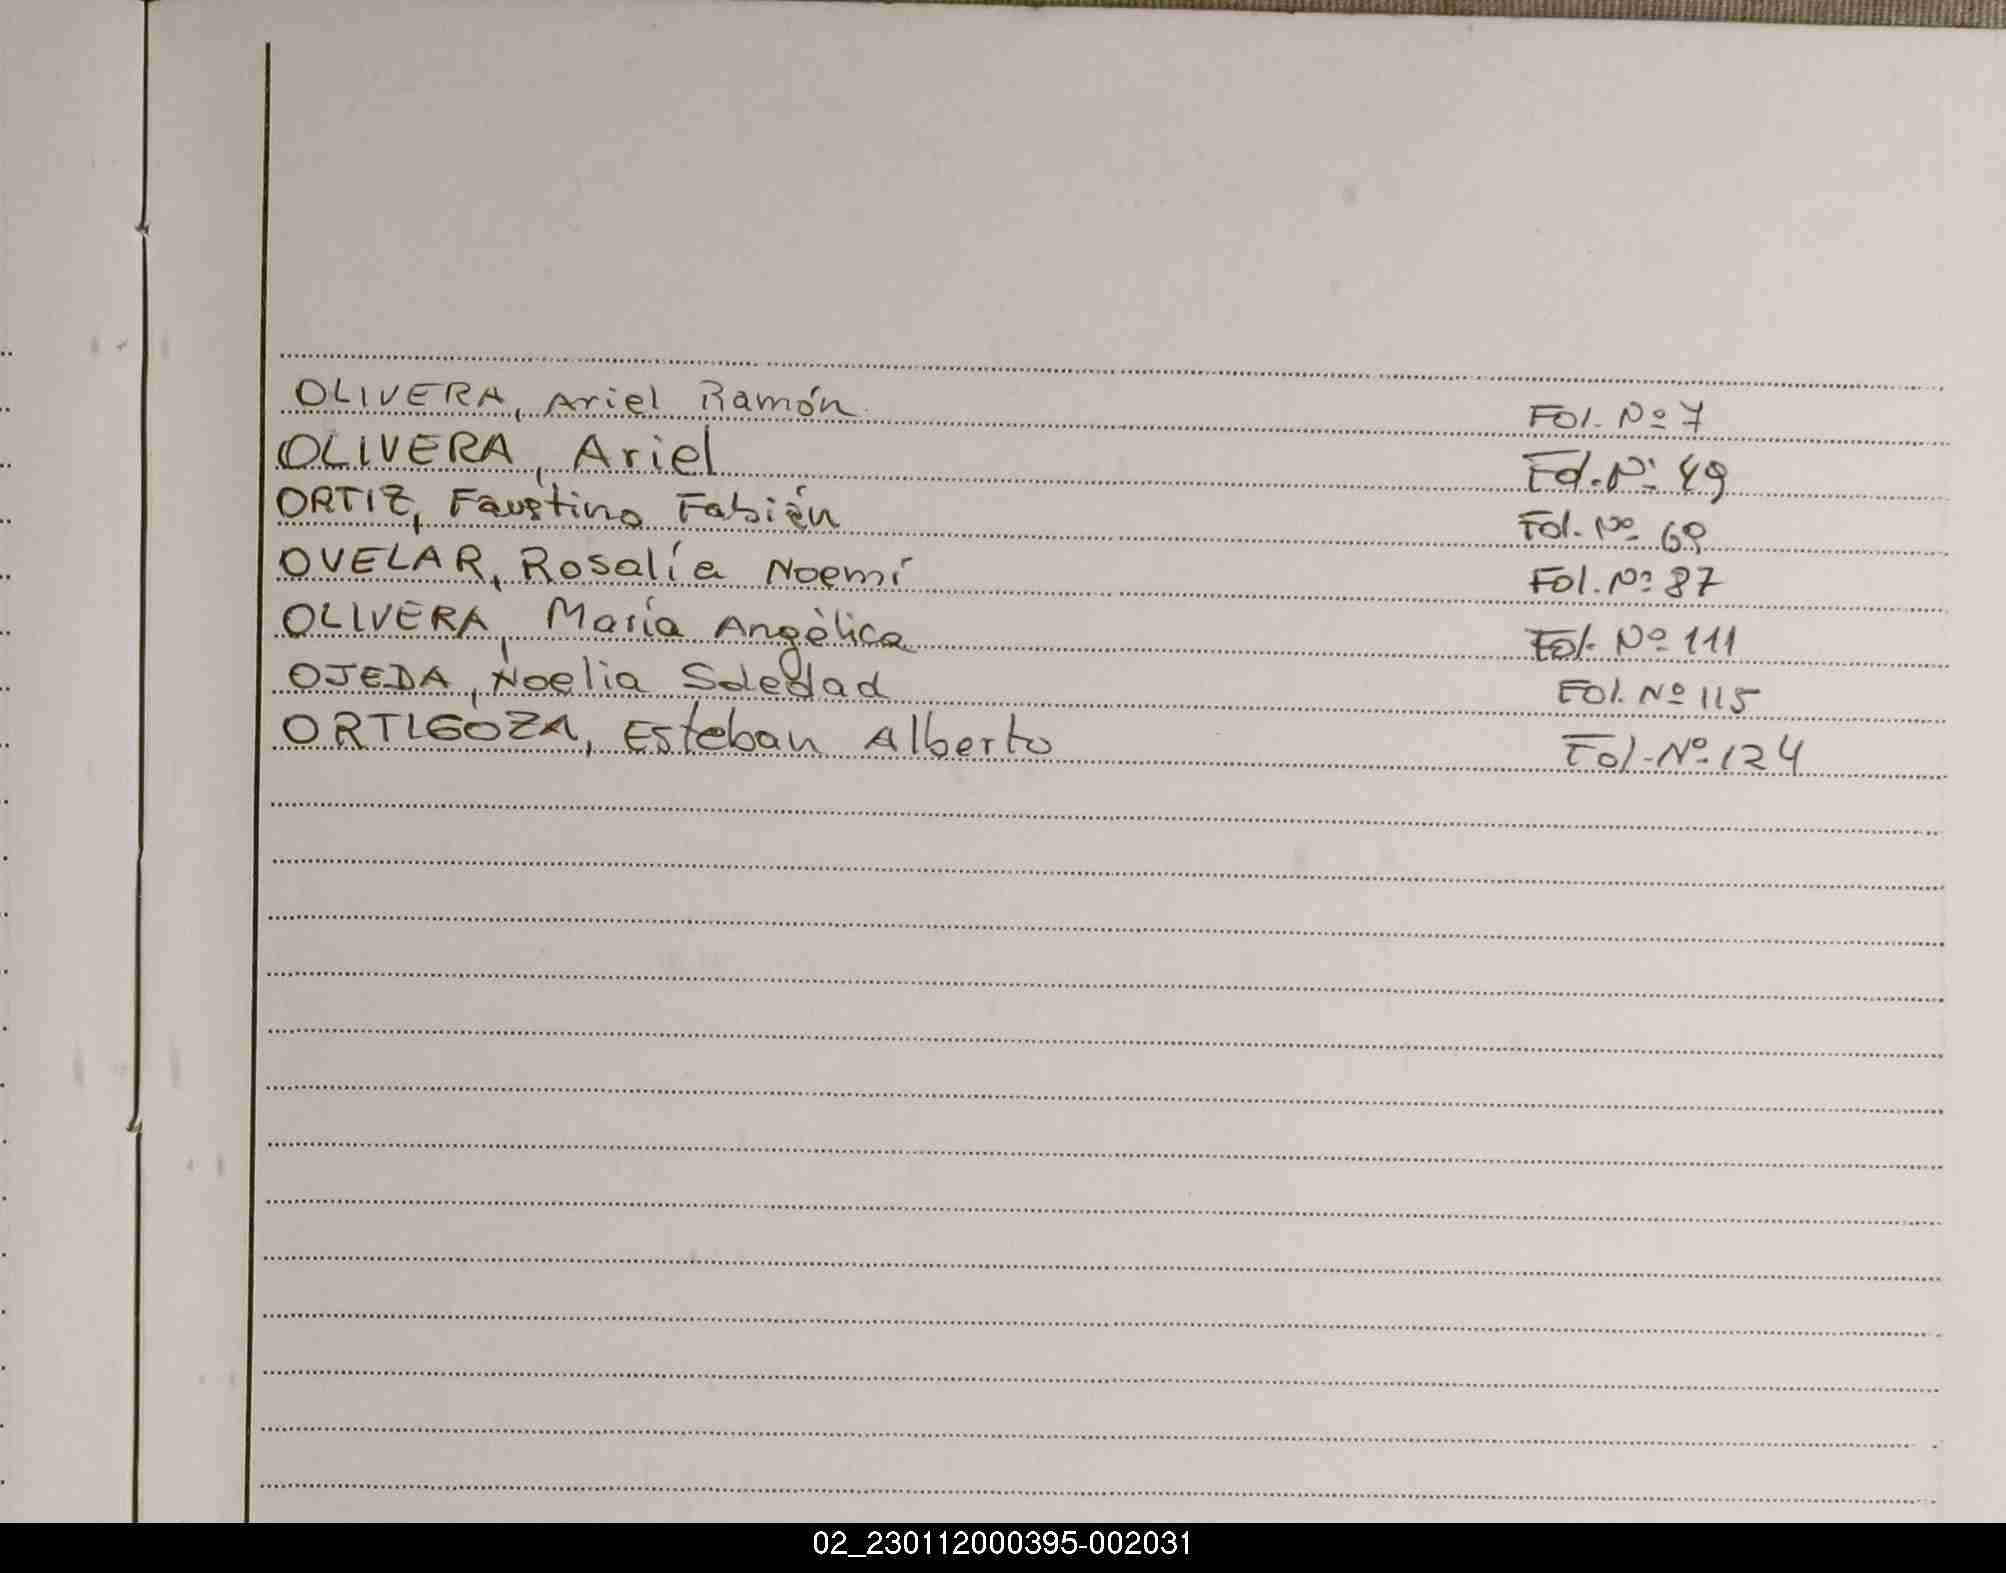 OLIVERA, Ariel Ramón. Fol. Nº 7
OLIVERA, Ariel Fol. Nº 49
ORTIZ, Faustino Fabián Fol. Nº 69
OVELAR, Rosalía Noemí Fol. Nº 87
OLIVERA, María Angèlica Fol. Nº 111
OJEDA, Noelia Soledad Fol. Nº 115
ORTIGOZA, Esteban Alberto Fol. Nº 124
02_230112000395-002031